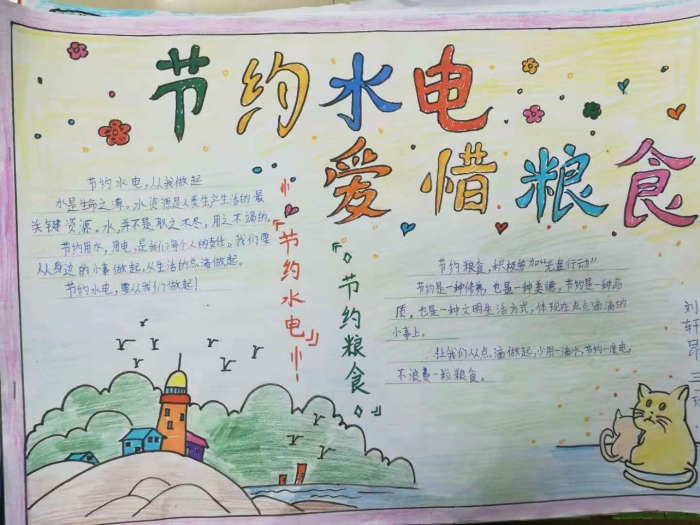 节约水电
爱惜粮食
节约水电，从我做起
水是生命之源。水资源是人类生产生活的最
关键资源，水并不是取之不尽，用之不竭的。
节约用水，用电，是我们每个人的责任。我们要
从身边的小事做起，从生活的点滴做起。
节约水电，要从我们做起！
『节约水电』
『节约粮食』
节约粮食，积极参加“光盘行动”
节约是一种修养，也是一种美德，节约是一种品
质，也是一种文明生活方式，体现在点点滴滴的
小事上。
让我们从点滴做起，少用一滴水，节约一度电，
不浪费一粒粮食。
刘
轩
昂
三